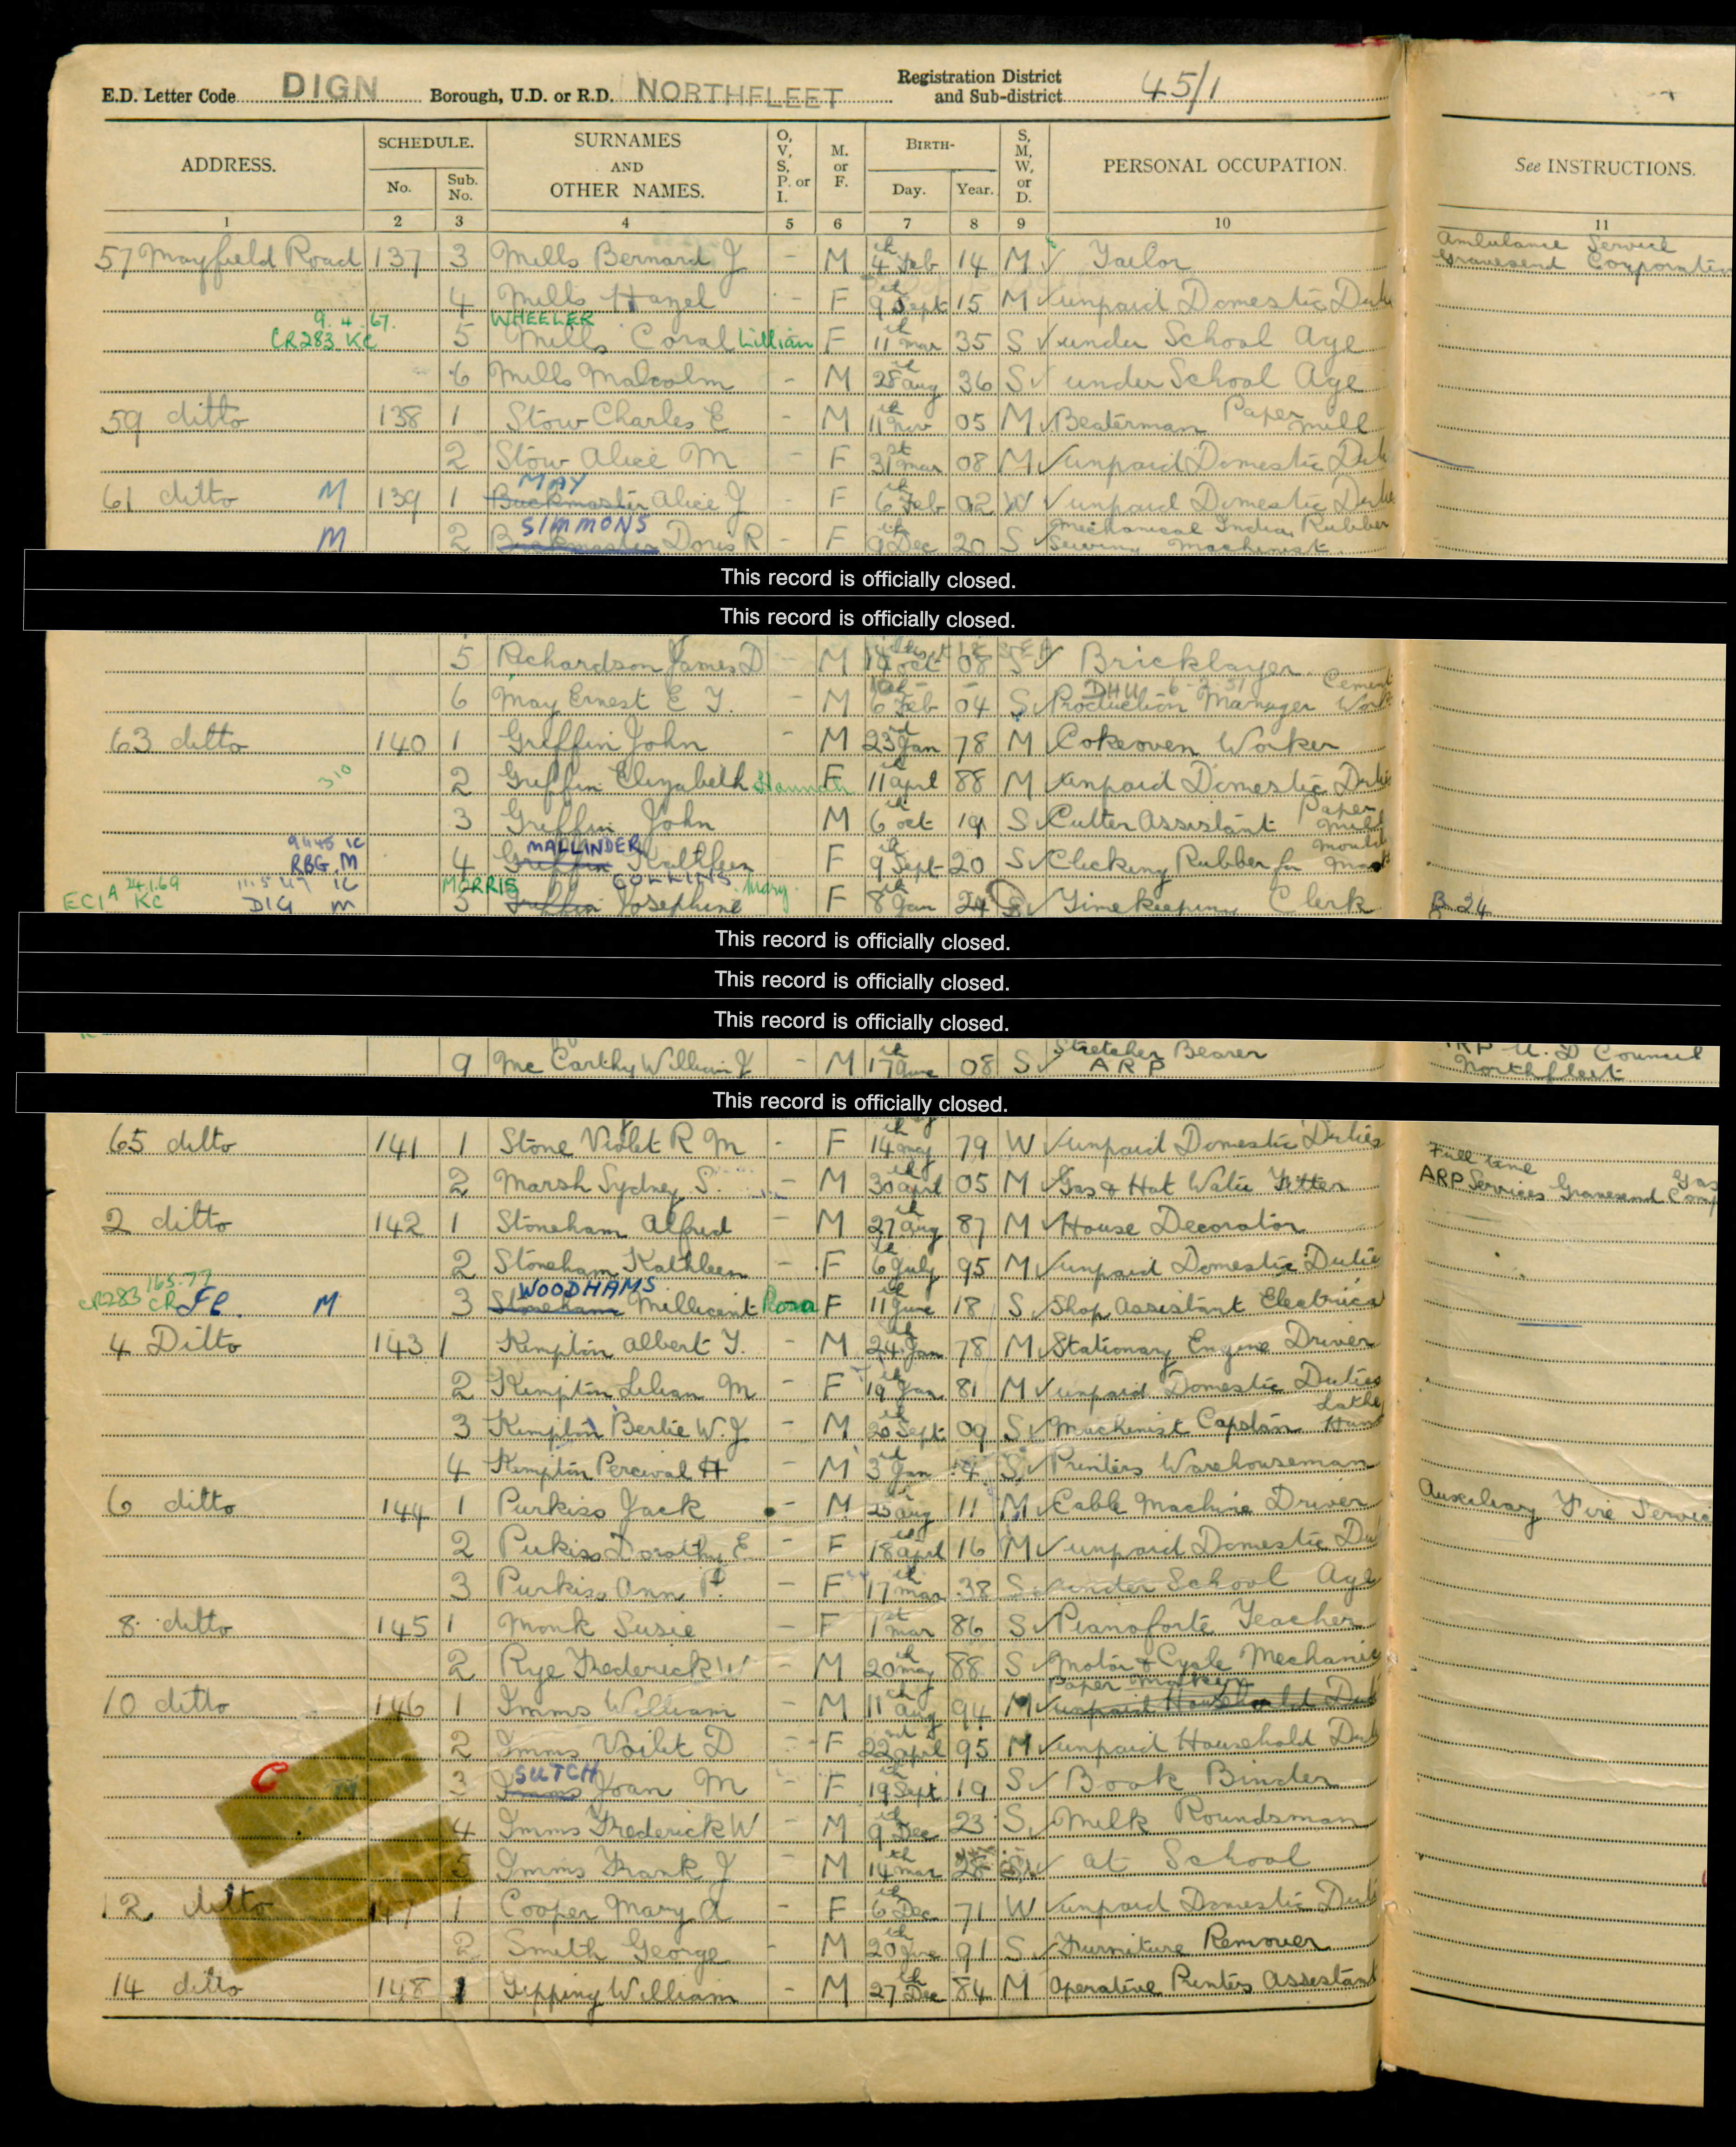 E.D. Letter Code DIGN Borough, U.D. or R.D. NORTHFLEET Registration District and Sub-district 45/1
ADDRESS. SCHEDULE. No. Sub. No. SURNAMES AND OTHER NAMES. O, V, S, P. or I. M. or F. BIRTH- Day. Year. S, M, W, or D. PERSONAL OCCUPATION. See INSTRUCTIONS.
1 2 3 4 5 6 7 8 9 10 11
57 Mayfield Road 137 3 Mills Bernard J - M 4th Feb 14 M Tailor Ambulance Service Gravesend Corporation
4 Mills Hazel - F 9th Sept 15 M unpaid Domestic
9.4.67. CR283 KC 5 WHEELER Mills Coral Lillian F 11th Mar 35 S under School Age
6 Mills Malcolm - M 28th Aug 36 S under School Age
59 ditto 138 1 Stow Charles E - M 11th Nov 05 M Beaterman Paper Mill
2 Stow Alice M - F 31st Mar 08 M unpaid Domestic
61 ditto M 139 1 MAY Buckmaster Alice J - F 6th Feb 02 W unpaid Domestic
M 2 SIMMONS Buckmaster Doris R - F 9th Dec 20 S Mechanical India Rubber Sewing Machinist
This record is officially closed.
This record is officially closed.
5 Richardson James D - M 14 Oct 08 S Bricklayer
6 May Ernest E T. - M 6 Feb 04 S Production Manager Cement
63 ditto 140 1 Griffin John - M 23rd Jan 78 M Cokeoven Worker
310 2 Griffin Elizabeth Hannah F 11th April 88 M unpaid Domestic Duties
3 Griffin John M 6th Oct 19 S Cutter Assistant Paper Mill
RBG M 4 MALLINDER Griffin Kathleen F 9th Sept 20 S Clicking Rubber for
ECIA 24.1.69 KC DIG M 5 MORRIS COLLINS Griffin Josephine Mary F 8th Jan 24 S Timekeeping Clerk B 24
This record is officially closed.
This record is officially closed.
This record is officially closed.
9 Mc Carthy William J - M 17th 08 S Stretcher Bearer ARP ARP U.D Council Northfleet
This record is officially closed.
65 ditto 141 1 Stone Violet R M - F 14th May 79 W unpaid Domestic Duties
2 Marsh Sydney S. - M 30th April 05 M Gas & Hot Water Fitter Full time ARP Services Gravesend Gas
2 ditto 142 1 Stoneham Alfred - M 27th Aug 87 M House Decorator
2 Stoneham Kathleen - F 6th July 95 M unpaid Domestic Dutie
CR283 16.5.77 CR M 3 WOODHAMS Stoneham Millicent Rosa F 11th June 18 S Shop Assistant Electrical
4 Ditto 143 1 Kimpton Albert T. - M 24th Jan 78 M Stationary Engine Driver
2 Kimpton Lilian M - F 19th Jan 81 M unpaid Domestic Duties
3 Kimpton Bertie W.J - M 20th Sept 09 S Machinist Capstan Lathe Hand
4 Kimpton Percival H - M 3rd Jan 14 S Printers Warehouseman
6 ditto 144 1 Purkiss Jack - M 25 Aug 11 M Cable Machine Driver Auxiliary Fire Service
2 Purkiss Dorothy E. - F 18th April 16 M unpaid Domestic
3 Purkiss Ann P. - F 17th Mar 38 S under School Age
8 ditto 145 1 Monk Susie - F 1st Mar 86 S Pianoforte Teacher
2 Rye Frederick W - M 20th May 88 S Motor & Cycle Mechanic
10 ditto 146 1 Imms William - M 11th Aug 94 M Paper Maker unpaid Household
2 Imms Voilet D - F 22nd April 95 M unpaid Household
C 3 SUTCH Imms Joan M - F 19th Sept 19 S Book Binder
4 Imms Frederick W - M 9th Dec 23 S Milk Roundsman
5 Imms Frank J - M 14th Mar 28 S at School
12 ditto 147 1 Cooper Mary A - F 6th Dec 71 W unpaid Domestic
2 Smith George - M 20th June 91 S Furniture Remover
14 ditto 148 1 Tipping William - M 27th Dec 84 M Operative Printers Assistant